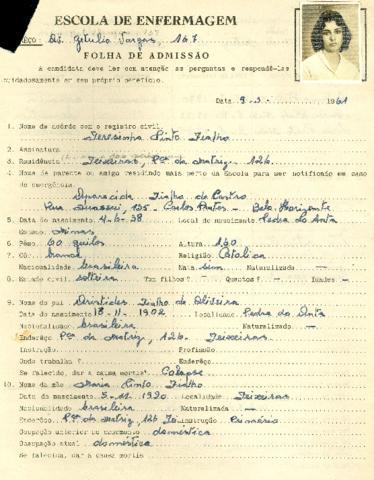 ESCOLA DE ENFERMAGEM
EÇO: Getúlio Vargas, 167
FOLHA DE ADMISSÃO
A candidata deve ler com atenção as perguntas e respondê-las
cuidadosamente em seu próprio benefício.
Data 9.3. 1961
1. Nome de acordo com o registro civil
Teresinha Pinto Fialho
2. Assinatura
3. Residência Teixeiras, Pça da Matriz, 126.
4. Nome de parente ou amigo residindo mais perto da Escola para ser notificado em caso
de emergência
Aparecida Fialho de Castro
Rua 135 - Carlos Prates - Belo Horizonte
5. Data do nascimento 4-6-38 Local de nascimento Pedra do Anta
Estado Minas
6. Pêso 60 quilos Altura 1,60
7. Côr branca Religião Católica
Nacionalidade brasileira Nata sim Naturalizada —
8. Estado civil solteira Tem filhos? — Quantos? — Idades —
9. Nome do pai Aristides Fialho de Oliveira
Data do nascimento 18-11-1902 Localidade Pedra do Anta
Nacionalidade brasileira Naturalizado —
Endereço Pça da Matriz, 126. Teixeiras
Instrução Profissão
Onde trabalha? Endereço
Se falecido, dar a causa mortis Colapso
10. Nome da mãe Maria Pinto Fialho
Data do nascimento 5-11-1920 Localidade Teixeiras
Nacionalidade brasileira Naturalizada —
Endereço Pça da Matriz, 126 Instrução Primário
Ocupação anterior ao casamento doméstica
Ocupação atual doméstica
Se falecida, dar a causa mortis